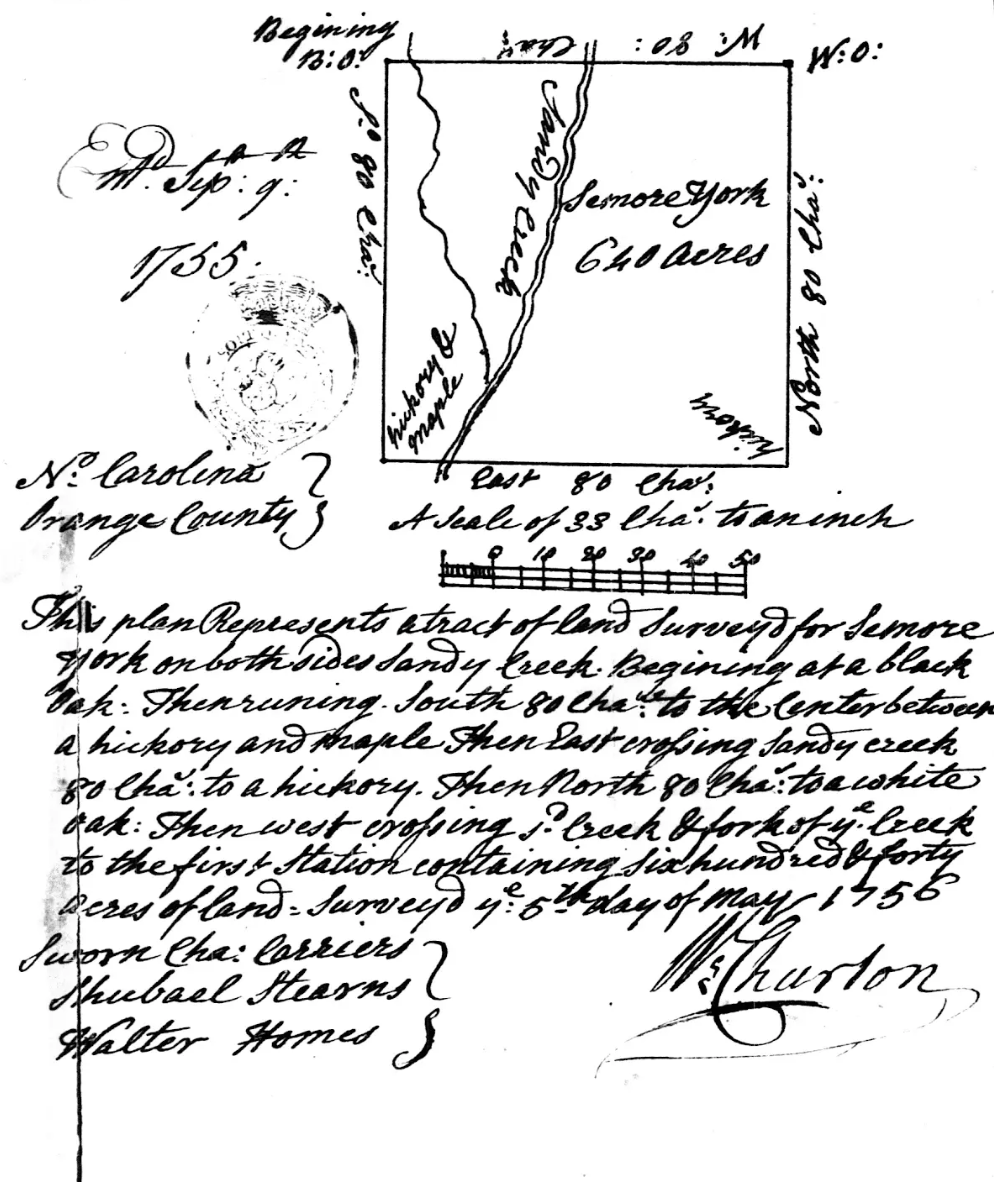 Begining
B:O:
W: 80 : Cha.s
W:O:
S.o 80 Cha.s:
Ent.d Sep: 9:
1755.
Sandy Creek
Semore York
640 acres
North 80 Cha.s:
hickory &
maple
hickory
East 80 Cha.s:
N.o Carolina
Orange County
A Scale of 33 Cha.s: to an inch
0 10 20 30 40 50
This plan Represents a tract of land Survey'd for Semore
York on both sides Sandy Creek. Begining at a black
Oak: Then runing South 80 Cha.s: to the Center between
a hickory and maple Then East crossing Sandy creek
80 Cha.s: to a hickory. Then North 80 Cha.s: to a white
oak: Then west crossing s.d Creek & fork of y.e Creek
to the first Station containing six hundred & forty
acres of land = Survey'd y.e: 5th day of may 1756
Sworn Cha: Carriers
Shubael Stearns
Walter Homes
W. Churton